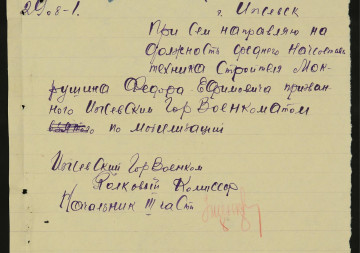 29/8-1. г. Ижевск
При сем направляю на
должность среднего начсостава
техника строителя Мок-
рушина Федора Ефимовича призван-
ного Ижевским ГорВоенкоматом
по мобилизаций
Ижевский ГорВоенком
Полковый Комиссар
Начальник III части